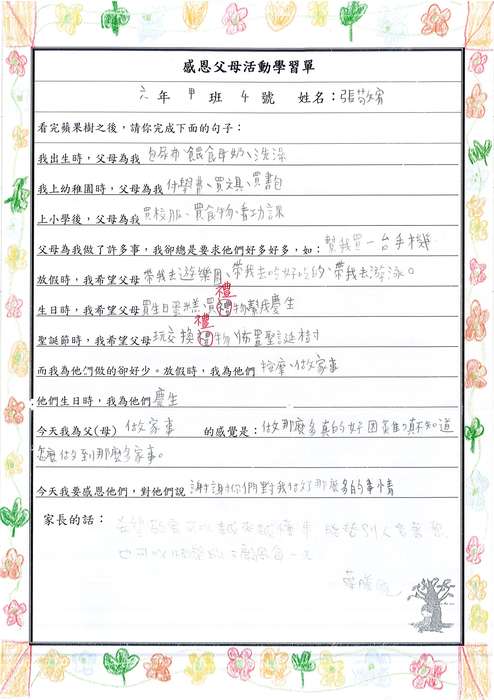 感恩父母活動學習單
六年甲班4號 姓名:張
看完蘋果樹之後,請你完成下面的句子:
我出生時,父母為我包尿布、餵食母奶、洗澡
我上幼稚園時,父母為我付學費、買文具、買書包
上小學後,父母為我買校服、買食物、看功課
父母為我做了許多事,我卻總是要求他們好多好多,如:幫我買一台手機
放假時,我希望父母帶我去遊樂園、帶我去吃好吃的、帶我去游泳。
禮
生日時,我希望父母買生日蛋糕、買禮物幫我慶生
禮
聖誕節時,我希望父母玩交換禮物、佈置聖誕樹
而我為他們做的卻好少。放假時,我為他們按摩、做家事
他們生日時,我為他們慶生
今天我為父(母)做家事的感覺是:做那麼多真的好困難、真不知道
怎麼做到那麼多家事。
今天我要感恩他們,對他們說謝謝你們對我付出了那麼多的事情
家長的話: